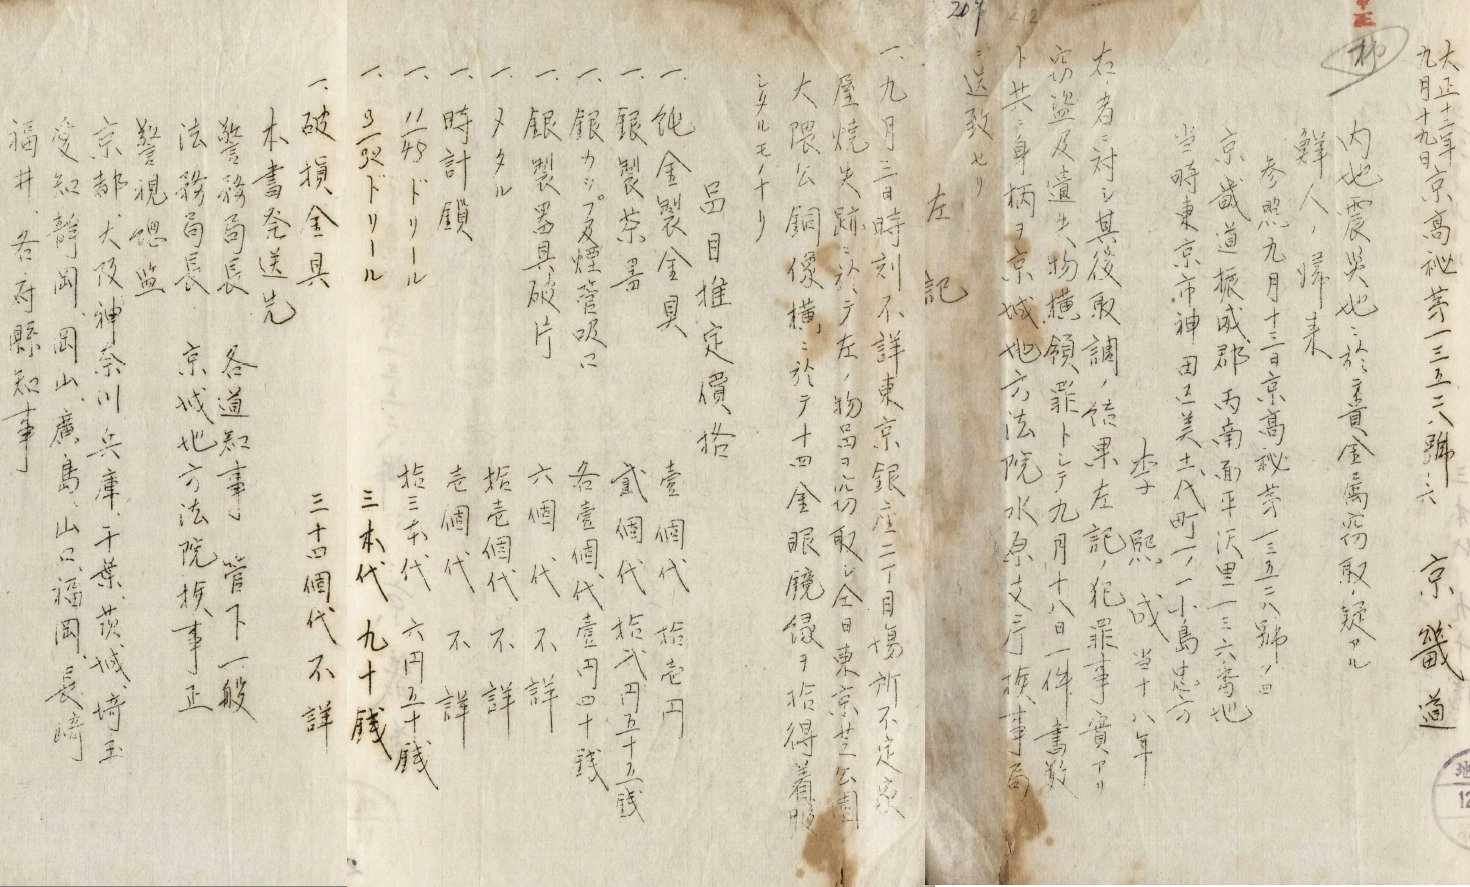 大正十二年
九月十九日 京高秘第一三五二八號ノ六 京畿道
内地震災地ニ於ル貴金屬窃取ノ疑アル
鮮人ノ歸来
参照九月十三日京高秘第一三五二八號ノ四
京畿道振威郡丙南面平沢里一三六番地
当時東京市神田区美土代町一ノ一小島忠方
李熙成 当十八年
右ノ者ニ対シ其後取調ノ結果左記ノ犯罪事實アリ
窃盗及遺失物横領罪トシテ九月十八日一件書類
ト共ニ身柄ヲ京城地方法院水原支庁検事局
ニ送致セリ
左記
一、九月三日時刻不詳東京銀座二丁目場所不定家
屋焼失跡ニ於テ左ノ物品ヲ窃取シ仝日東京芝公園
大隈公銅像横ニ於テ十四金眼鏡縁ヲ拾得着服
シタルモノナリ
品目推定價格
一、純金製金具 壹個代 拾壱円
一、銀製茶器 貳個代 拾弐円五十五銭
一、銀カップ及煙管吸口 各壹個代 壹円四十銭
一、銀製器具破片 六個代 不詳
一、メタル 拾壱個代 不詳
一、時計鎖 壱個代 不詳
一、11/45ドリール 拾三本代 六円五十銭
一、3/32ドリール 三本代 九十銭
一、破損金具 三十四個代 不詳
本書発送先
警務局長 各道知事 管下一般
法務局長 京城地方法院検事正
警視総監
京都、大阪、神奈川、兵庫、千葉、茨城、埼玉
愛知、静岡、岡山、廣島、山口、福岡、長崎
福井、各府縣知事